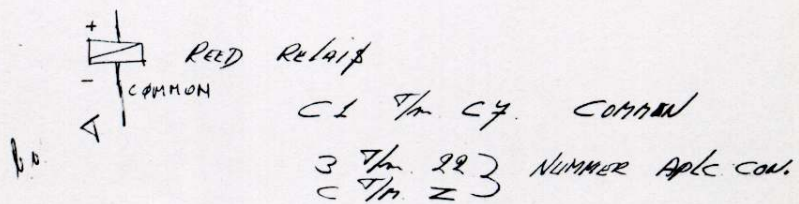 +
REED RELAIS
-
COMMON
C1 T/m C7. COMMON
3 T/m 22 } NUMMER APLC CON.
C T/m Z }